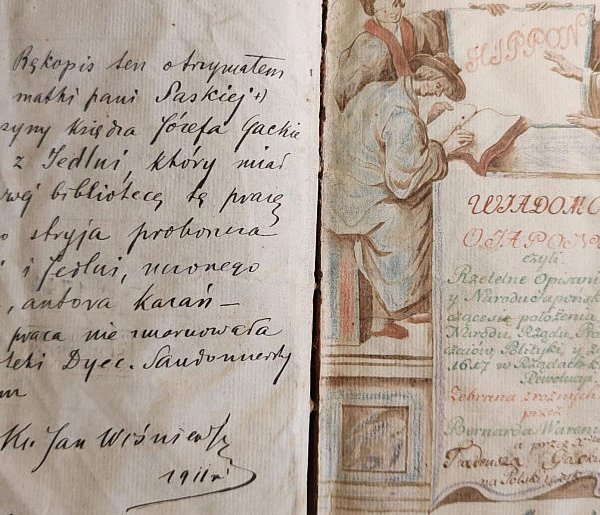 Rękopis ten otrzymałem
matki pani Saskiej +)
szyny księdza Józefa Gackie
z Jedlni, który miał
swej bibliotece tę pracę
o stryja proboszcza
i Jedlni, uczonego
, autora kazań —
praca nie zmarnowała
teki Dyec. Sandomiersky
Ks. Jan Wiśniewski
1911 r.
HIPPON
WIADOMO
O JAPON
czyli
Rzetelne Opisani
y Narodu Japońsk
położenie
Narodu, Rządu, Pra
Polityki, y z
1617 w Rządach k
Rewolucyi
Zebrana z rożnych
przez
Bernarda Wareni
a przez X
Tadeusza Gacki
na Polski język